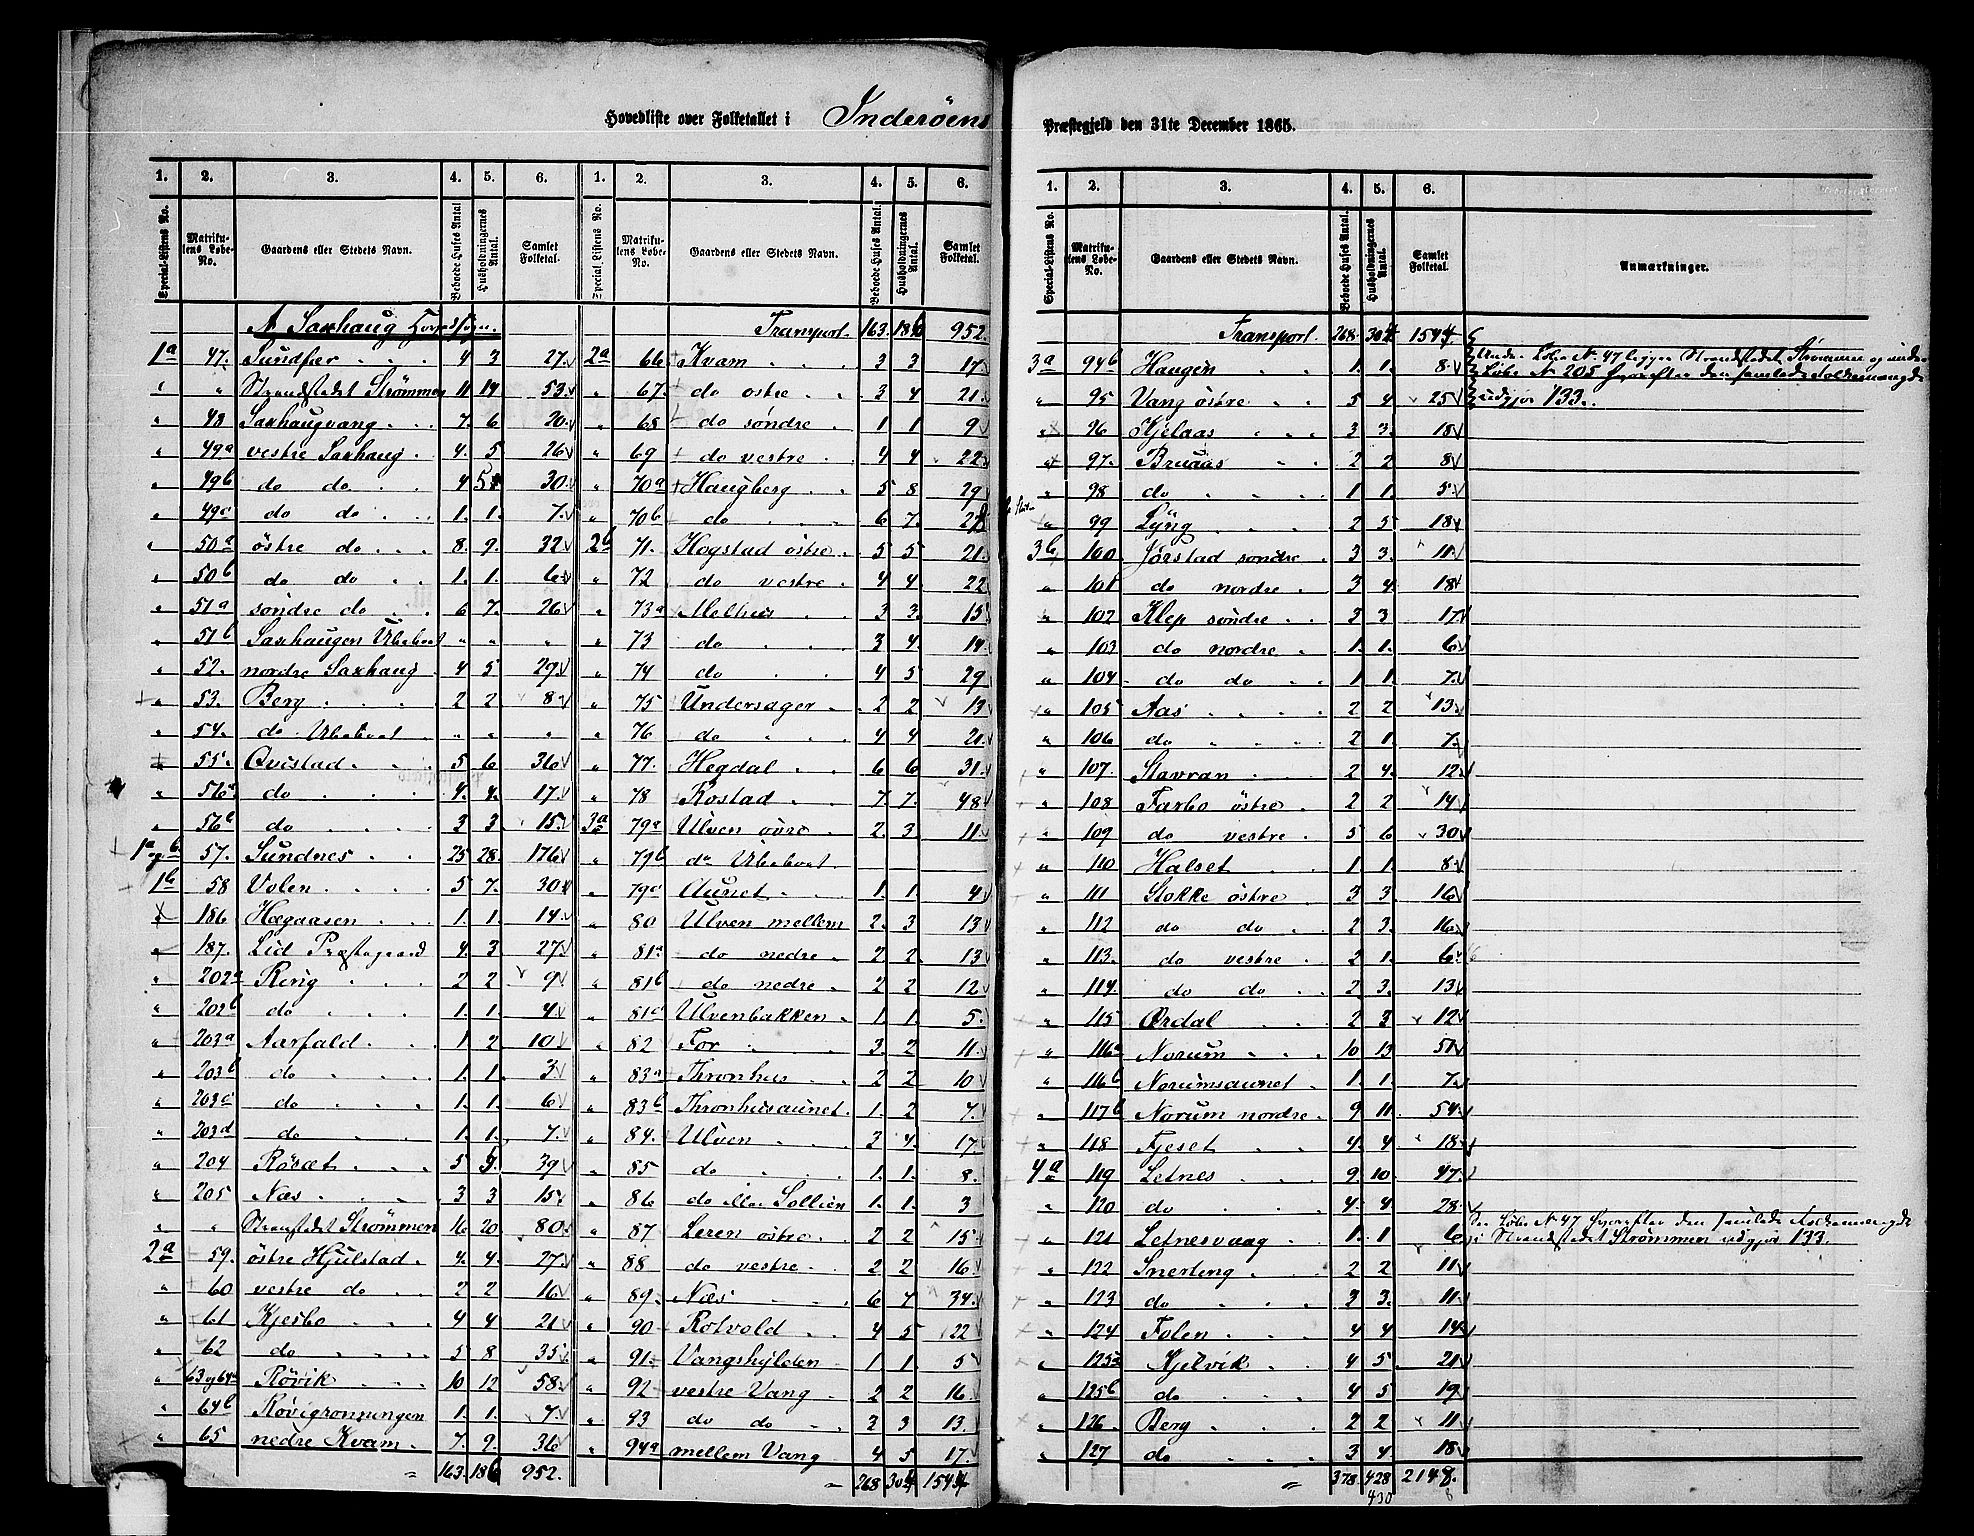 Hovedliste over Folketallet i Inderöens
Præstegjeld den 31te December 1865.
1. 2. 3. 4. 5. 6. 1. 2. 3. 4. 5. 6.
Special-Listens No. Matrikulens Løbe-No. Gaardens eller Stedets Navn. Beboede Huses Antal Husholdningernes Antal. Samlet Folketal. Special-Listens No. Matrikulens Løbe-No. Gaardens eller Stedets Navn. Beboede Huses Antal. Husholdningernes Antal. Samlet Folketal.
A Saxhaug Hovedsogn.
1a 47. Sundfær 4 3 27
" " Strandstedet Strømmen 11 14 53
" 48 Saxhaugvang 7. 6 20
" 49a vestre Saxhaug 4. 5 26
" 49b do do 4 5 30
" 49c do do 1. 1. 7.
" 50a östre do 8. 9. 32
" 50b do do 1. 1. 6
" 51a søndre do 6 7. 26
" 51b Saxhaugen Ubeboet " " "
" 52. nordre Saxhaug 4 5 27
" 53. Berg 2 2 8
" 54. do Ubeboet " " "
" 55. Quistad 5 6 36
" 56a do 4. 4. 17.
" 56b do 3 3. 15
1a og b 57. Sundnes 25 28. 176
1b 58 Volen 5 7. 30
" 186 Hægaasen 1. 1. 14.
" 187. Lid Præstegaard 4. 3 27
" 202a Ring 2 2 9
" 202b do 1. 1. 4
" 203a Aarfald 1. 2 10
" 203b do 1. 1. 3
" 203c do 1. 1. 6
" 203d do 1. 1. 7.
" 204 Røsæt 5 5. 39
" 205 Næs 3 3 15
" " Strandstedet Strømmen 16 20 80
2a 59. östre Hjulstad 4. 4. 27.
" 60 vestre do 2 2 16
" 61 Kjesbo 4 4 21
" 62 do 5 8 35
63 og 64a Røvik 10 12 58
" 64b Røvigrønningen 1. 1. 7.
" 65 nedre Kvam 7. 9. 36
163. 186 952.
Transport. 163. 186 952.
2a 66 Kvam 3 3 17
" 67. do ostre 3 4 21
" 68 do søndre 1 1 9
" 69 do vestre 4 4 22
" 70a Haugberg 5 8 29
" 70b do 6 7. 28
2b 71. Hogstad östre 5 5 21.
" 72 do vestre 4 4. 22
" 73a Melhus 3 3. 15
" 73 do 3 4. 14.
" 74 do 4 5 29
" 75 Undersager 2 2 13
" 76 do 4 4 21.
" 77. Hegdal 6 6 31.
" 78 Rostad 7. 7. 48
3a 79a Ulven øvre 2. 3 11
" 79b do Ubeboet
" 79c Aunet 1. 1. 4
" 80 Ulven mellem 2. 3 13
" 81a do nedre 2 2. 13
" 81b do nedre 2 2 12
" 81c Ulvenbakken 1. 1. 5.
" 82 For 3. 2 11.
" 83a Thronhus 2 2 10
" 83b Thronhusaunet 1. 2 7.
" 84. Ulven 3 4. 17.
" 85 do 1. 1. 8.
" 86 do eller Sollien 1. 1. 3
" 87 Leren östre 2 2 15
" 88 do vestre 2 2 16
" 89. Næs 6 7 34.
" 90 Rotvold 4 5 22
" 91. Vangshylden 1 1. 5
" 92 vestre Vang 2 2 16.
" 93 do do 3 3 13.
" 94a mellem Vang 4 5 17.
268 304 1544
1. 2. 3. 4. 5. 6.
Special-Listens No. Matrikulens Løbe-No. Gaardens eller Stedets Navn. Beboede Huses Antal. Husholdningernes Antal. Samlet Folketal. Anmærkninger.
Transport. 268. 304 1544
3a 94b Haugen 1. 1. 8
" 95 Vang östre 5 4 25
" 96 Kjelaas 3 3. 18
" 97. Bruaas 2 2 8
" 98 do 1 1. 5
" 99 Lyng 2 5 18
3b 100 Jørstad søndre 3 3. 11
" 101 do nordre 3 4. 18
" 102 Klep søndre 3 3 17
" 103 do nordre 1. 1. 6
" 104 do do 1 1. 7.
" 105 Aas 2 2 13.
" 106 do 2 1. 7
" 107. Stavran 2 4. 12
" 108 Farbo östre 2 2 14
" 109 do vestre 5 6 30
" 110 Halset 1 1. 8
" 111 Stokke östre 3 3. 16
" 112 do do 2 3. 16
" 113. do vestre 2 1. 6
" 114. do do 2 3. 13
" 115 Ørdal 2 3 12
" 116a Norum 10 13 51
" 116b Norumsaunet 1. 1. 7.
" 117b Norum nordre 9 11. 54.
" 118 Fjeset 4. 4 18
4a 119 Letnes 9. 10. 47.
" 120 do 4. 4 28
" 121 Letnesvaag 1. 1 6
" 122 Snerting 2 2 11
" 123 do 3 3. 11
" 124 Folen 4 4 14
" 125a Kjelvik 4 5. 21
" 125b do 4 5 19
" 126 Berg 2 2 11
" 127 do 3 4. 18
378. 428 2148.
430 8
Under Løbe No 47 ligger Strandstedet Strømmen og under
Løbe No 205 hvorefter den samlede Folkemængde
udgjør 133.
See Løbe No 47 hvorefter den samlede Folkemængde
i Strandstedet Strømmen udgjør 133.